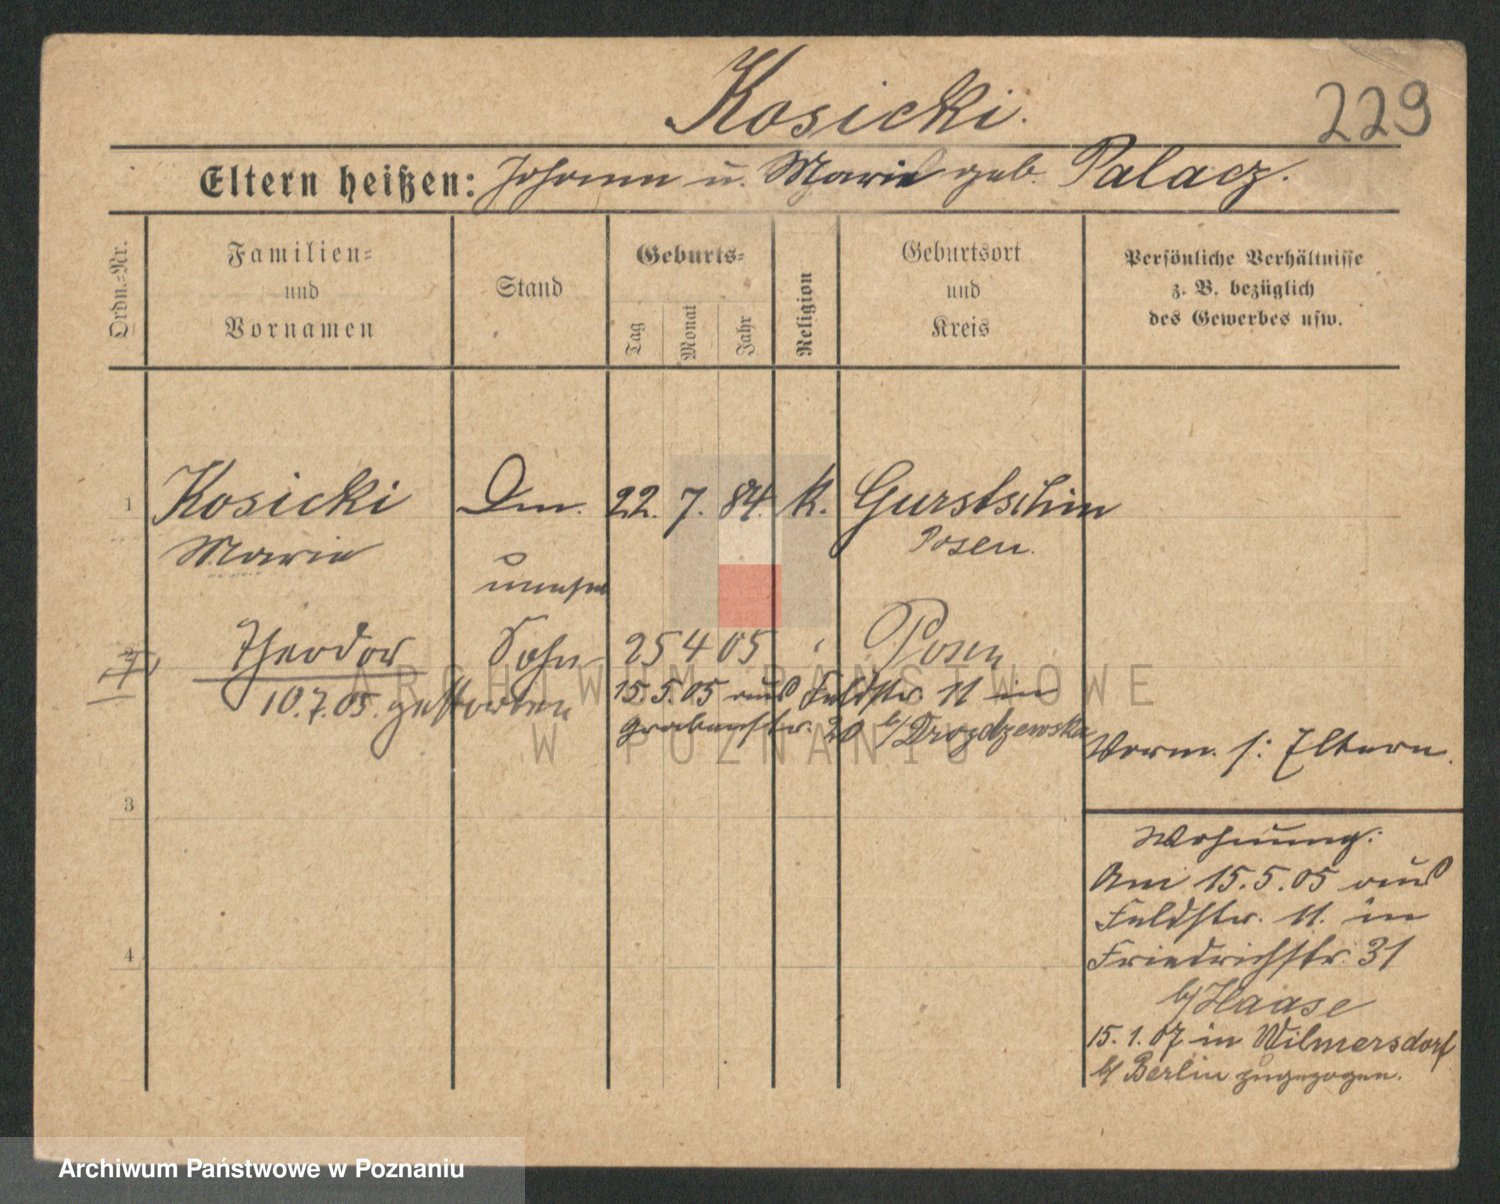 Kosicki.
229
Eltern heißen: Johann u. Marie geb. Palacz.
Ordn.-Nr.
Familien- und Vornamen
Stand
Geburts-
Tag
Monat
Jahr
Religion
Geburtsort und Kreis
Persönliche Verhältnisse z. B. bezüglich des Gewerbes usw.
1 Kosicki 22. 7. 84. K. Gurtschin
Marie Posen.
2 Theodor Sohn 25 4 05 Posen
† 10.7.05. gestorben
15.5.05 aus Feldstr. 11 in
Grabenstr. 20 b/ Drozdzewska
Vorm. s: Eltern.
3
Wohnung:
Am 15.5.05 aus
Feldstr. 11. in
Friedrichstr. 31
b/ Haase
15.1.07 in Wilmersdorf
b/ Berlin zugezogen.
4
ARCHIWUM PAŃSTWOWE
W POZNANIU
Archiwum Państwowe w Poznaniu